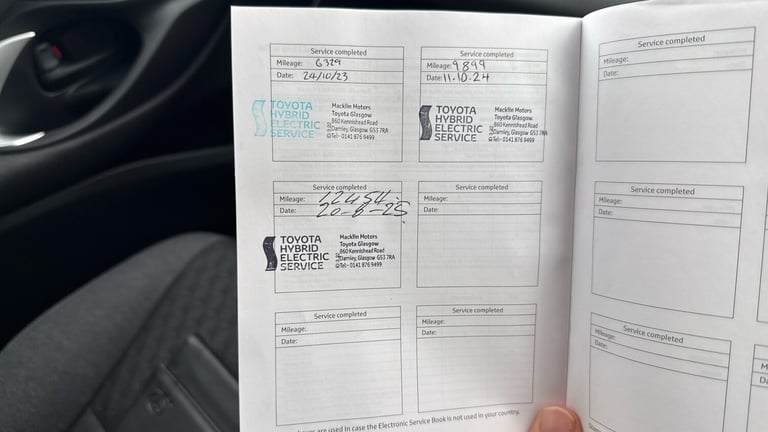 Service completed
Mileage: 6329
Date: 24/10/23
TOYOTA
HYBRID
ELECTRIC
SERVICE
Macklin Motors
Toyota Glasgow
860 Kennishead Road
Darnley, Glasgow G53 7RA
Tel:- 0141 876 9499
Service completed
Mileage: 9899
Date: 11.10.24
TOYOTA
HYBRID
ELECTRIC
SERVICE
Macklin Motors
Toyota Glasgow
860 Kennishead Road
Darnley, Glasgow G53 7RA
Tel:- 0141 876 9499
Service completed
Mileage: 12454
Date: 20-8-25
TOYOTA
HYBRID
ELECTRIC
SERVICE
Macklin Motors
Toyota Glasgow
860 Kennishead Road
Darnley, Glasgow G53 7RA
Tel:- 0141 876 9499
Service completed
Mileage:
Date:
Service completed
Mileage:
Date:
Service completed
Mileage:
Date:
are used in case the Electronic Service Book is not used in your country.
Service completed
Mileage:
Date:
Service completed
Mileage:
Date:
Service completed
Mileage:
Date: